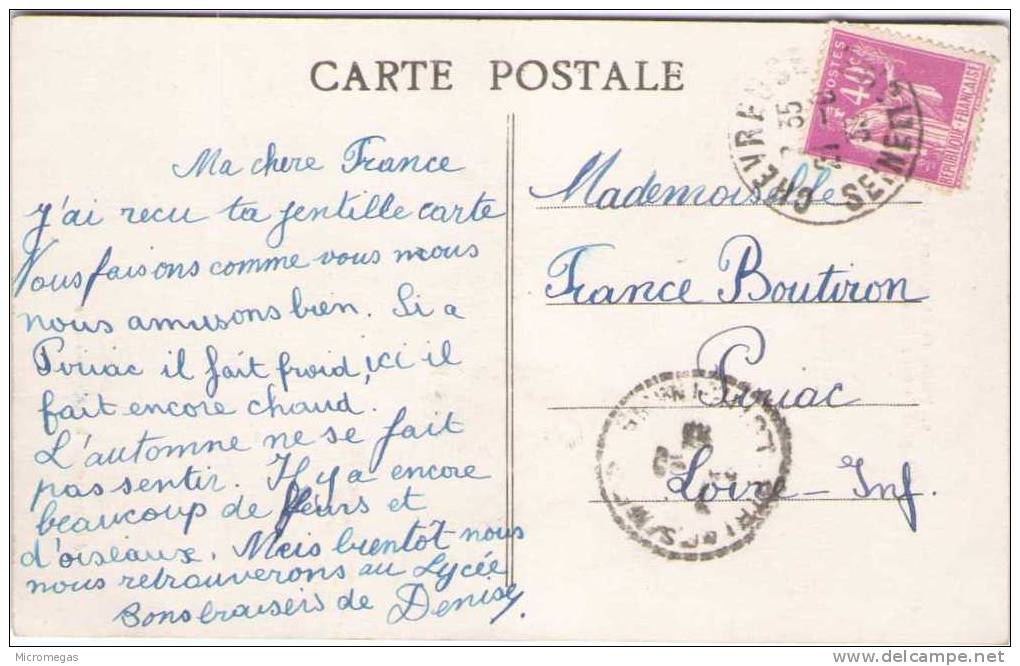 CARTE POSTALE
Ma chere France
J'ai recu ta gentille carte
Nous faisons comme vous nous
nous amusons bien. Si a
Piriac il fait froid, ici il
fait encore chaud.
L'automne ne se fait
pas sentir. Il y a encore
beaucoup de fleurs et
d'oiseaux. Mais bientôt nous
nous retrouverons au Lycée
Bons baisers de Denise.
Mademoiselle
France Boutiron
Piriac
Loire-Inf.
POSTES
40c
REPUBLIQUE-FRANÇAISE
CHEVREUSE
SEINE
35
Micromegas
www.delcampe.net